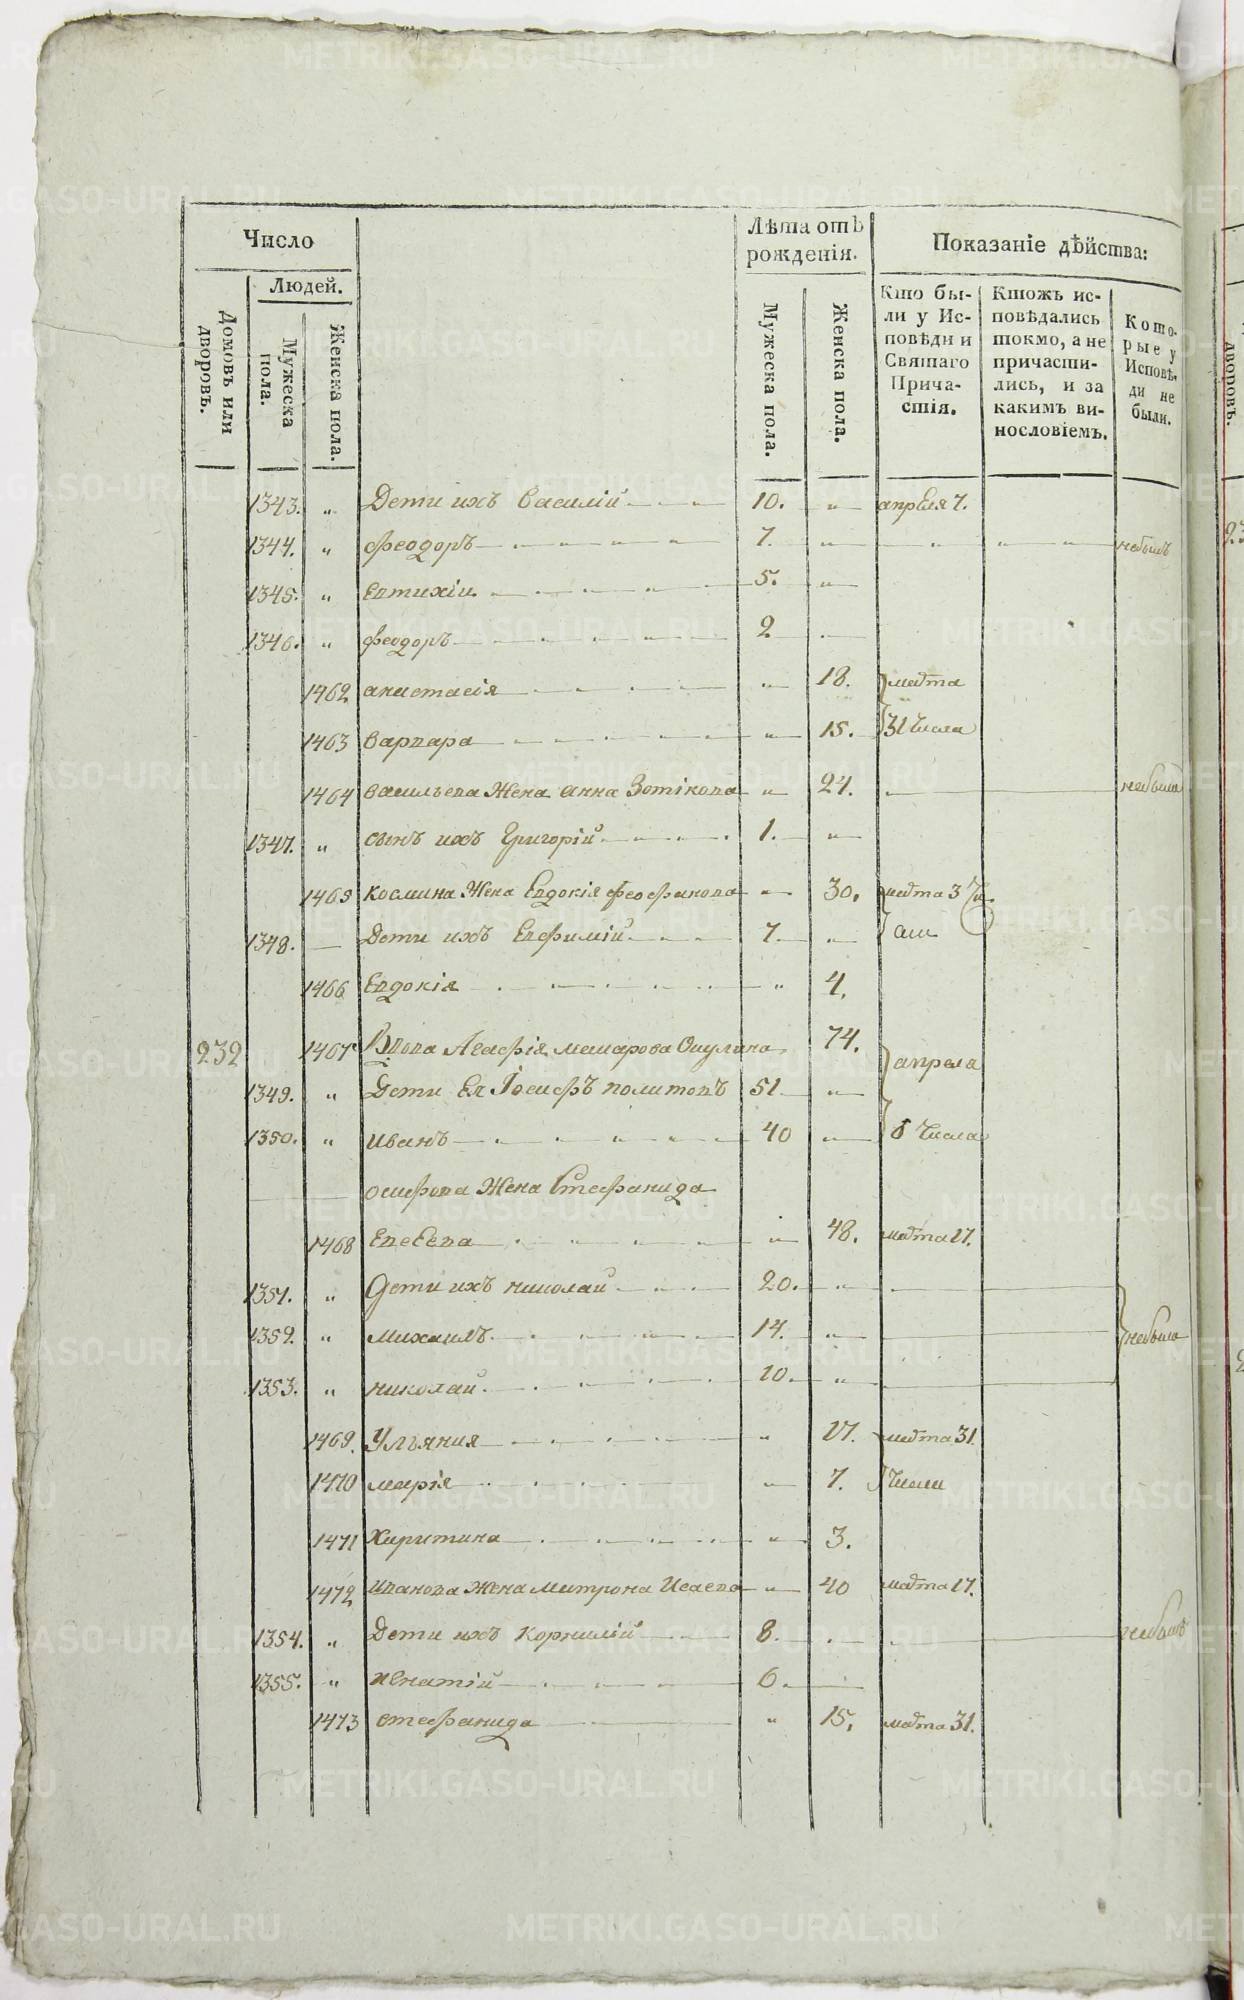 Число
Лѣта отъ рожденія.
Показаніе дѣйства:
Людей.
Домовъ или дворовъ.
Мужеска пола.
Женска пола.
Мужеска пола.
Женска пола.
Кто были у Исповѣди и Святаго Причастія.
Ктожъ исповѣдались токмо, а не причастились, и за какимъ винословіемъ.
Которые у Исповѣди не были.
1343. „ Дети ихъ Василій 10. „ апреля 7.
1344. „ Феодоръ 7. „ „ „ „ небылъ
1345. „ Евтихіи 5. „
1346. „ Феодоръ 2
1462 анастасія „ 18. марта
1463 варвара „ 15. 31 числа
1464 васильева Жена анна Зотікова „ 24. небыла
1347. „ сынъ ихъ Григорій 1. „
1465 космина Жена Евдокія Феофанова „ 30. марта 3
1348. Дети ихъ Евфимій 7. „
1466 Евдокія „ 4.
232 1467 Вдова Агафія 74. апреля
1349. „ Дети Ея Іосифъ политовъ 51 „
1350. „ иванъ 40 „ 8 числа
осифова Жена Стефанида
1468 Евсеева „ 48. марта 17.
1351. „ Дети ихъ николай 20. „
1352. „ михаилъ 14. „ небыли
1353. „ николай 10. „
1469. Ульяния „ 17. марта 31.
1470 марія „ 7. числа
1471 Харитина „ 3.
1472 иванова Жена Матрона Исаева „ 40 марта 17.
1354. „ Дети ихъ Корнилій 8. небылъ
1355. „ игнатій 6.
1473 стефанида „ 15. марта 31.
METRIKI.GASO-URAL.RU